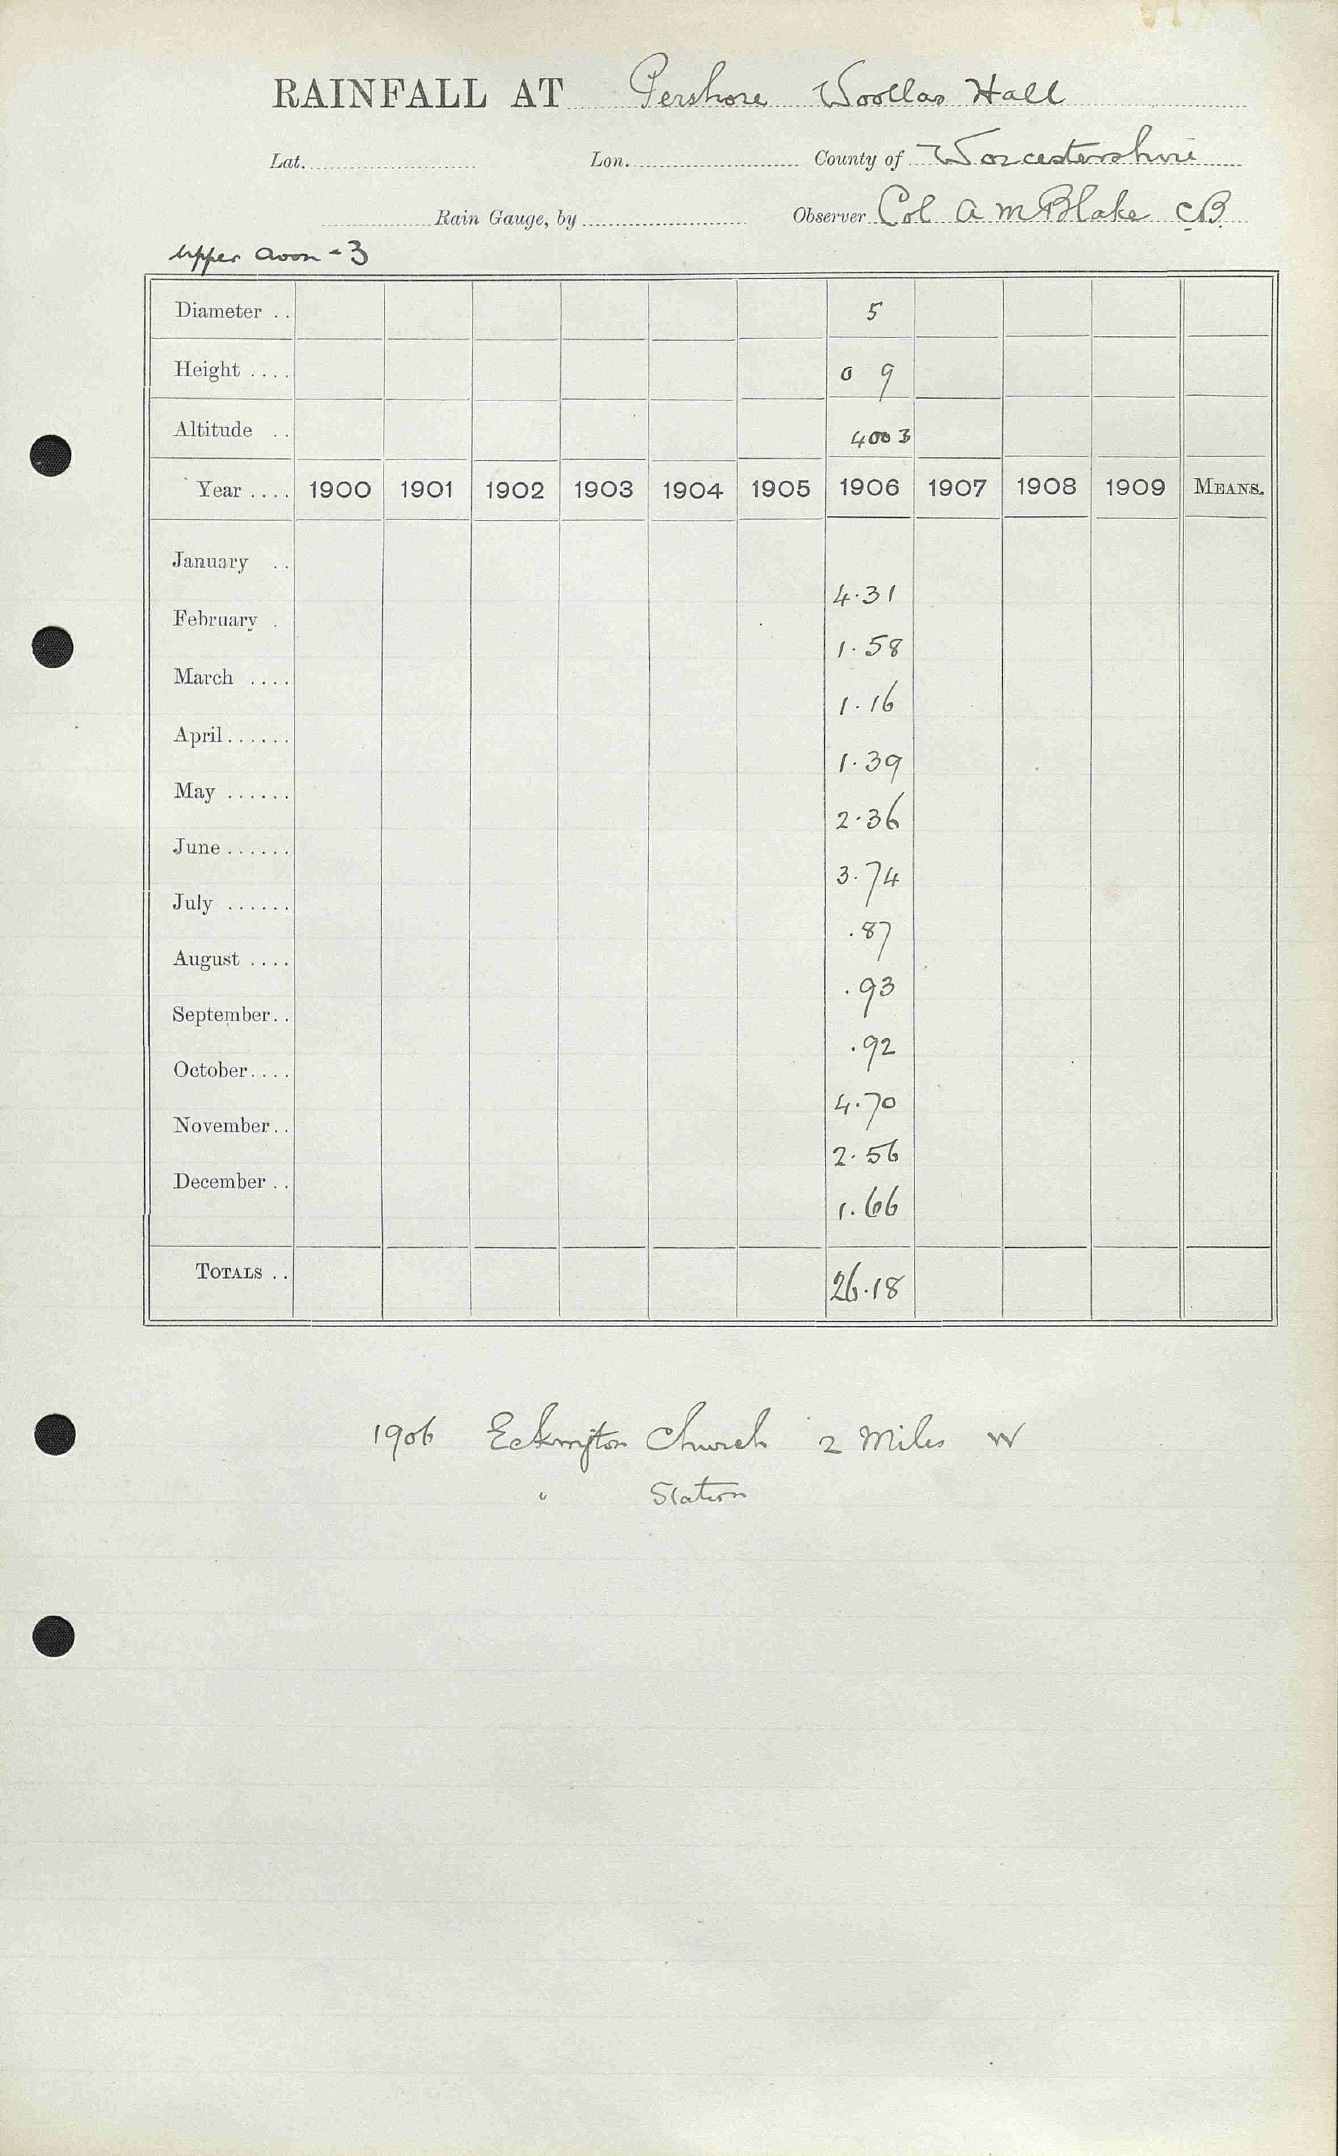 RAINFALL AT Pershore Woollas Hall
Lat. Lon. County of Worcestershire
Rain Gauge, by Observer Col A M Blake CB
Upper Avon - 3
Diameter .. 5
Height .... 0 9
Altitude .. 400 3
Year .... 1900 1901 1902 1903 1904 1905 1906 1907 1908 1909 MEANS.
January ..
4.31
February .
1.58
March ....
1.16
April......
1.39
May ......
2.36
June ......
3.74
July ......
.87
August ....
.93
September..
.92
October....
4.70
November..
2.56
December ..
1.66
TOTALS .. 26.18
1906 Eckington Church 2 Miles W
" Station